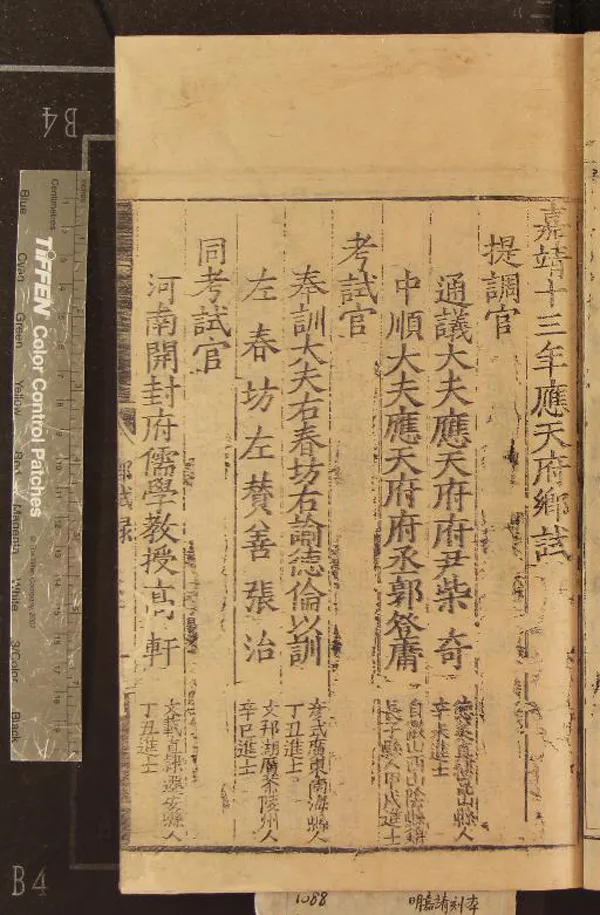 嘉靖十三年應天府鄉試
提調官
通議大夫應天府府尹柴奇
德美直隸崑山縣人
辛未進士
中順大夫應天府府丞郭登庸
山西山陰縣籍
長子縣人甲戌進士
考試官
奉訓大夫右春坊右諭德倫以訓
彥式廣東南海縣人
丁丑進士
左春坊左贊善張治
文邦湖廣茶陵州人
辛巳進士
同考試官
河南開封府儒學教授高軒
文載直隸遷安縣人
丁丑進士
鄉試錄
B4
B4
TIFFEN Color Control Patches
© The Tiffen Company, 2007
Centimetres
Blue
Cyan
Green
Yellow
Red
Magenta
White
3/Color
Black
1088
明嘉靖刻本